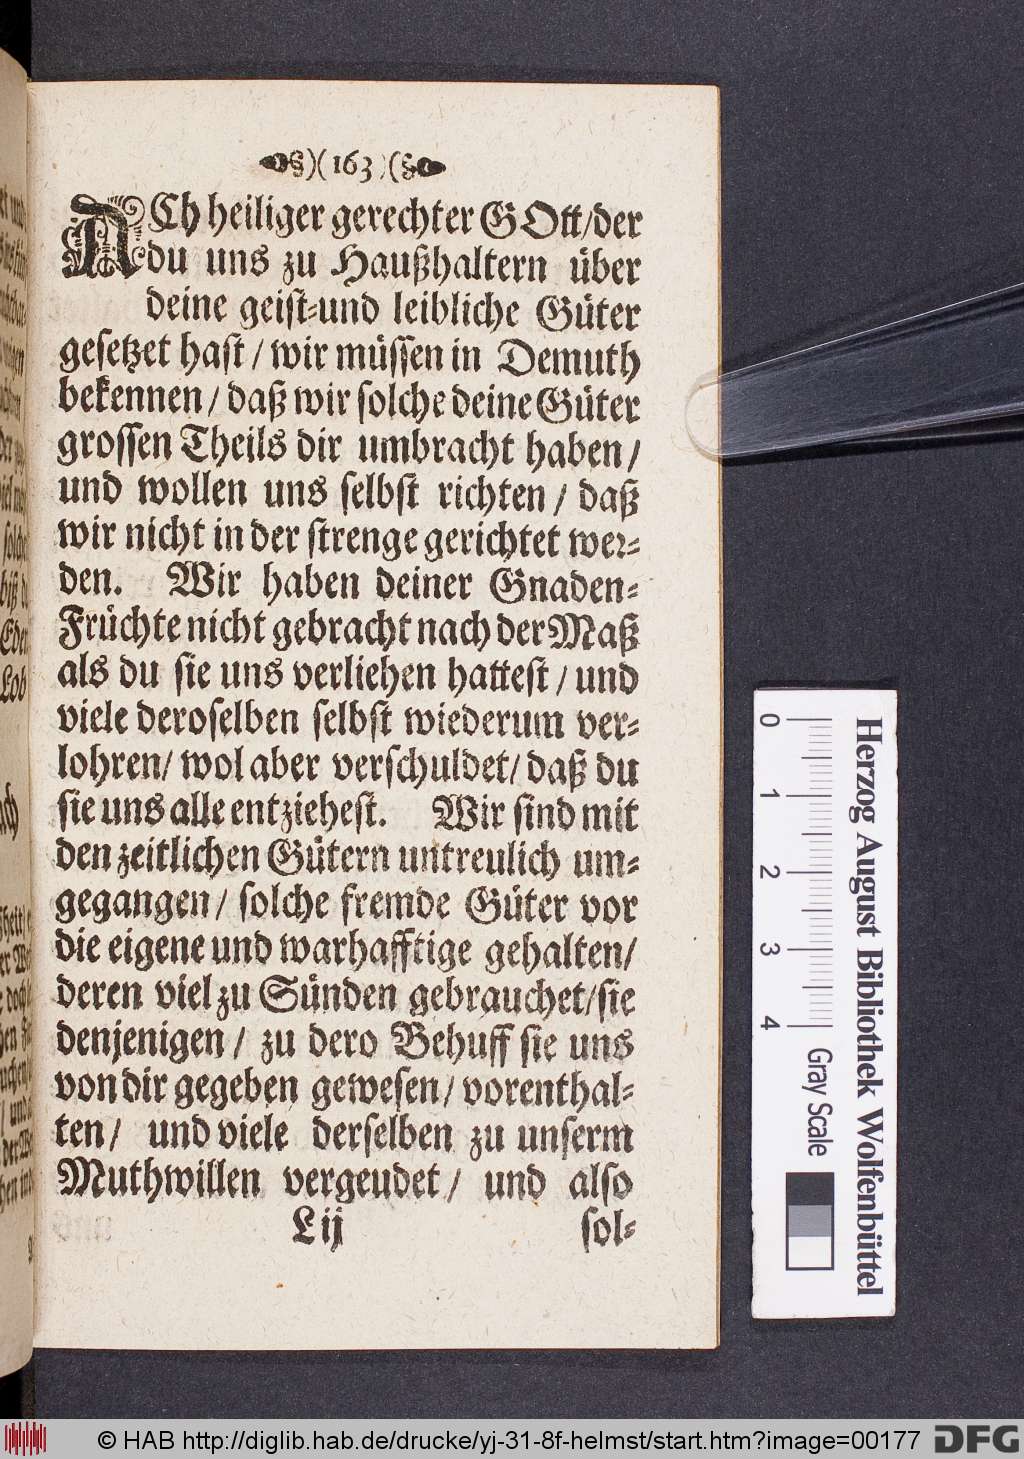 )( 163 )(
ACh heiliger gerechter GOtt/der
du uns zu Haußhaltern über
deine geist=und leibliche Güter
gesetzet hast / wir müssen in Demuth
bekennen / daß wir solche deine Güter
grossen Theils dir umbracht haben /
und wollen uns selbst richten / daß
wir nicht in der strenge gerichtet wer=
den. Wir haben deiner Gnaden=
Früchte nicht gebracht nach der Maß
als du sie uns verliehen hattest / und
viele deroselben selbst wiederum ver=
lohren/ wol aber verschuldet/ daß du
sie uns alle entziehest. Wir sind mit
den zeitlichen Gütern untreulich um=
gegangen / solche fremde Güter vor
die eigene und warhafftige gehalten/
deren viel zu Sünden gebrauchet/sie
denjenigen / zu dero Behuff sie uns
von dir gegeben gewesen / vorenthal=
ten / und viele derselben zu unserm
Muthwillen vergeudet / und also
L ij sol=
Herzog August Bibliothek Wolfenbüttel
0 1 2 3 4 Gray Scale
© HAB http://diglib.hab.de/drucke/yj-31-8f-helmst/start.htm?image=00177 DFG